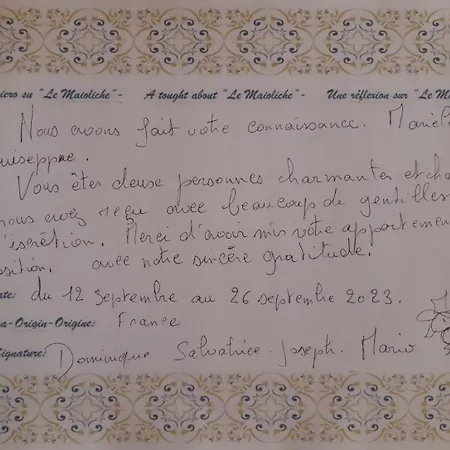 iero su "Le Maioliche"- A tought about "Le Maioliche"- Une réflexion sur "Le M
Nous avons fait votre connaissance. Mariell
uiseppre.
Vous êtes deuse personnes charmantes et cha
nous avez reçu avec beaucoup de gentilles
discrétion. Merci d'avoir mis votre appartement
osition. avec notre sincère gratitude.
ate: du 12 Septembre au 26 septembre 2023.
a-Origin-Origine: France
Signature: Dominique Salvatrice. Joseph. Mario